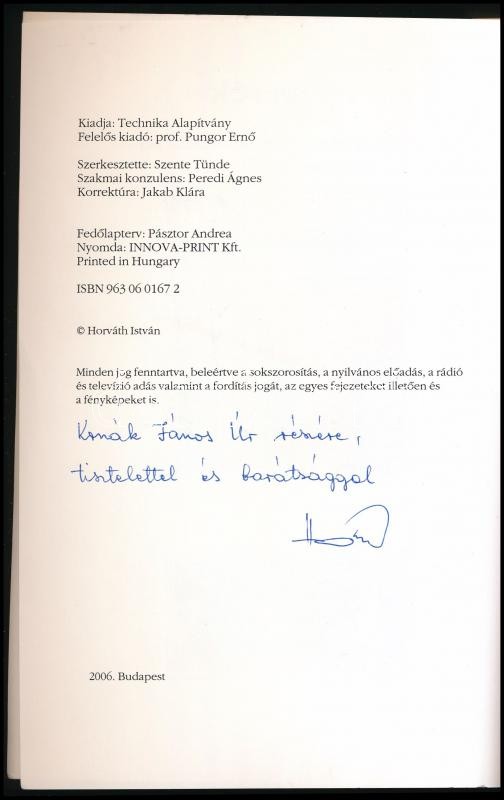 Kiadja: Technika Alapítvány
Felelős kiadó: prof. Pungor Ernő
Szerkesztette: Szente Tünde
Szakmai konzulens: Peredi Ágnes
Korrektúra: Jakab Klára
Fedőlapterv: Pásztor Andrea
Nyomda: INNOVA-PRINT Kft.
Printed in Hungary
ISBN 963 06 0167 2
© Horváth István
Minden jog fenntartva, beleértve a sokszorosítás, a nyilvános előadás, a rádió
és televízió adás valamint a fordítás jogát, az egyes fejezeteket illetően és
a fényképeket is.
János Úr részére,
tisztelettel és barátsággal
2006. Budapest